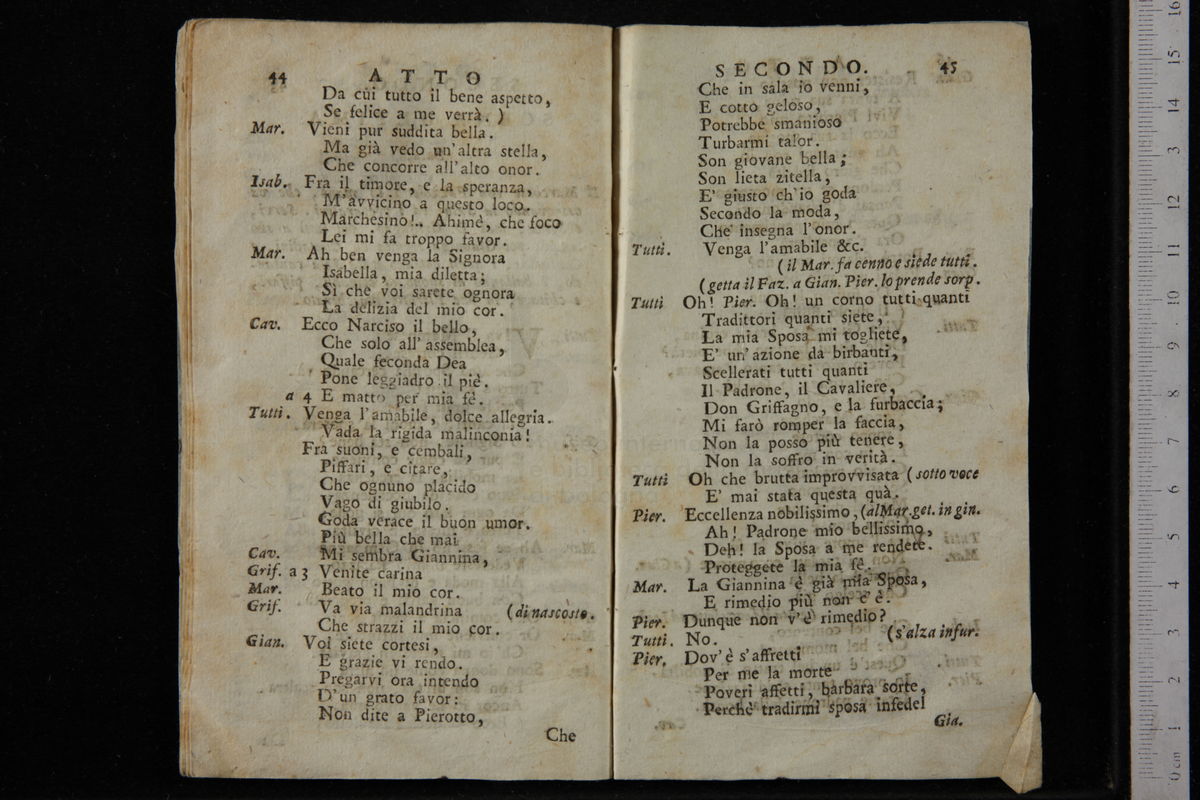 44 ATTO
Da cui tutto il bene aspetto,
Se felice a me verrà. )
Mar. Vieni pur suddita bella.
Ma già vedo un'altra stella,
Che concorre all'alto onor.
Isab. Fra il timore, e la speranza,
M'avvicino a questo loco.
Marchesino!.. Ahimè, che foco
Lei mi fa troppo favor.
Mar. Ah ben venga la Signora
Isabella, mia diletta;
Sì che voi sarete ognora
La delizia del mio cor.
Cav. Ecco Narciso il bello,
Che solo all'assemblea,
Quale feconda Dea
Pone leggiadro il piè.
a 4 E matto per mia fè.
Tutti. Venga l'amabile, dolce allegria.
Vada la rigida malinconia!
Fra suoni, e cembali,
Piffari, e citare,
Che ognuno placido
Vago di giubilo.
Goda verace il buon umor.
Più bella che mai
Cav. Mi sembra Giannina,
Grif. a 3 Venite carina
Mar. Beato il mio cor.
Grif. Va via malandrina (di nascosto.
Che strazzi il mio cor.
Gian. Voi siete cortesi,
E grazie vi rendo.
Pregarvi ora intendo
D'un grato favor:
Non dite a Pierotto,
Che
SECONDO. 45
Che in sala io venni,
E cotto geloso,
Potrebbe smanioso
Turbarmi talor.
Son giovane bella;
Son lieta zitella,
E' giusto ch'io goda
Secondo la moda,
Che insegna l'onor.
Tutti. Venga l'amabile &c.
(il Mar. fa cenno e siede tutti.
(getta il Faz. a Gian. Pier. lo prende sorp.
Tutti Oh! Pier. Oh! un corno tutti quanti
Tradittori quanti siete,
La mia Sposa mi togliete,
E' un'azione da birbanti,
Scellerati tutti quanti
Il Padrone, il Cavaliere,
Don Griffagno, e la furbaccia;
Mi farò romper la faccia,
Non la posso più tenere,
Non la soffro in verità.
Tutti Oh che brutta improvvisata (sotto voce
E' mai stata questa quà.
Pier. Eccellenza nobilissimo, (al Mar. get. in gin.
Ah! Padrone mio bellissimo,
Deh! la Sposa a me rendete.
Proteggete la mia fè.
Mar. La Giannina è già mia Sposa,
E rimedio più non c'è.
Pier. Dunque non v'è rimedio?
Tutti. No. (s'alza infur.
Pier. Dov'è s'affretti
Per me la morte
Poveri affetti, barbara sorte,
Perchè tradirmi sposa infedel
Gia.
16
15
14
13
12
11
10
9
8
7
6
5
4
3
2
1
0 cm